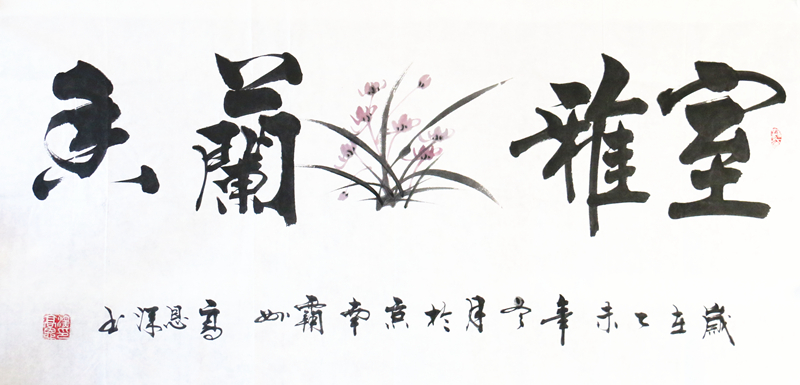 室雅蘭香
歲在乙未年冬月於京南霸州 高恩澤书